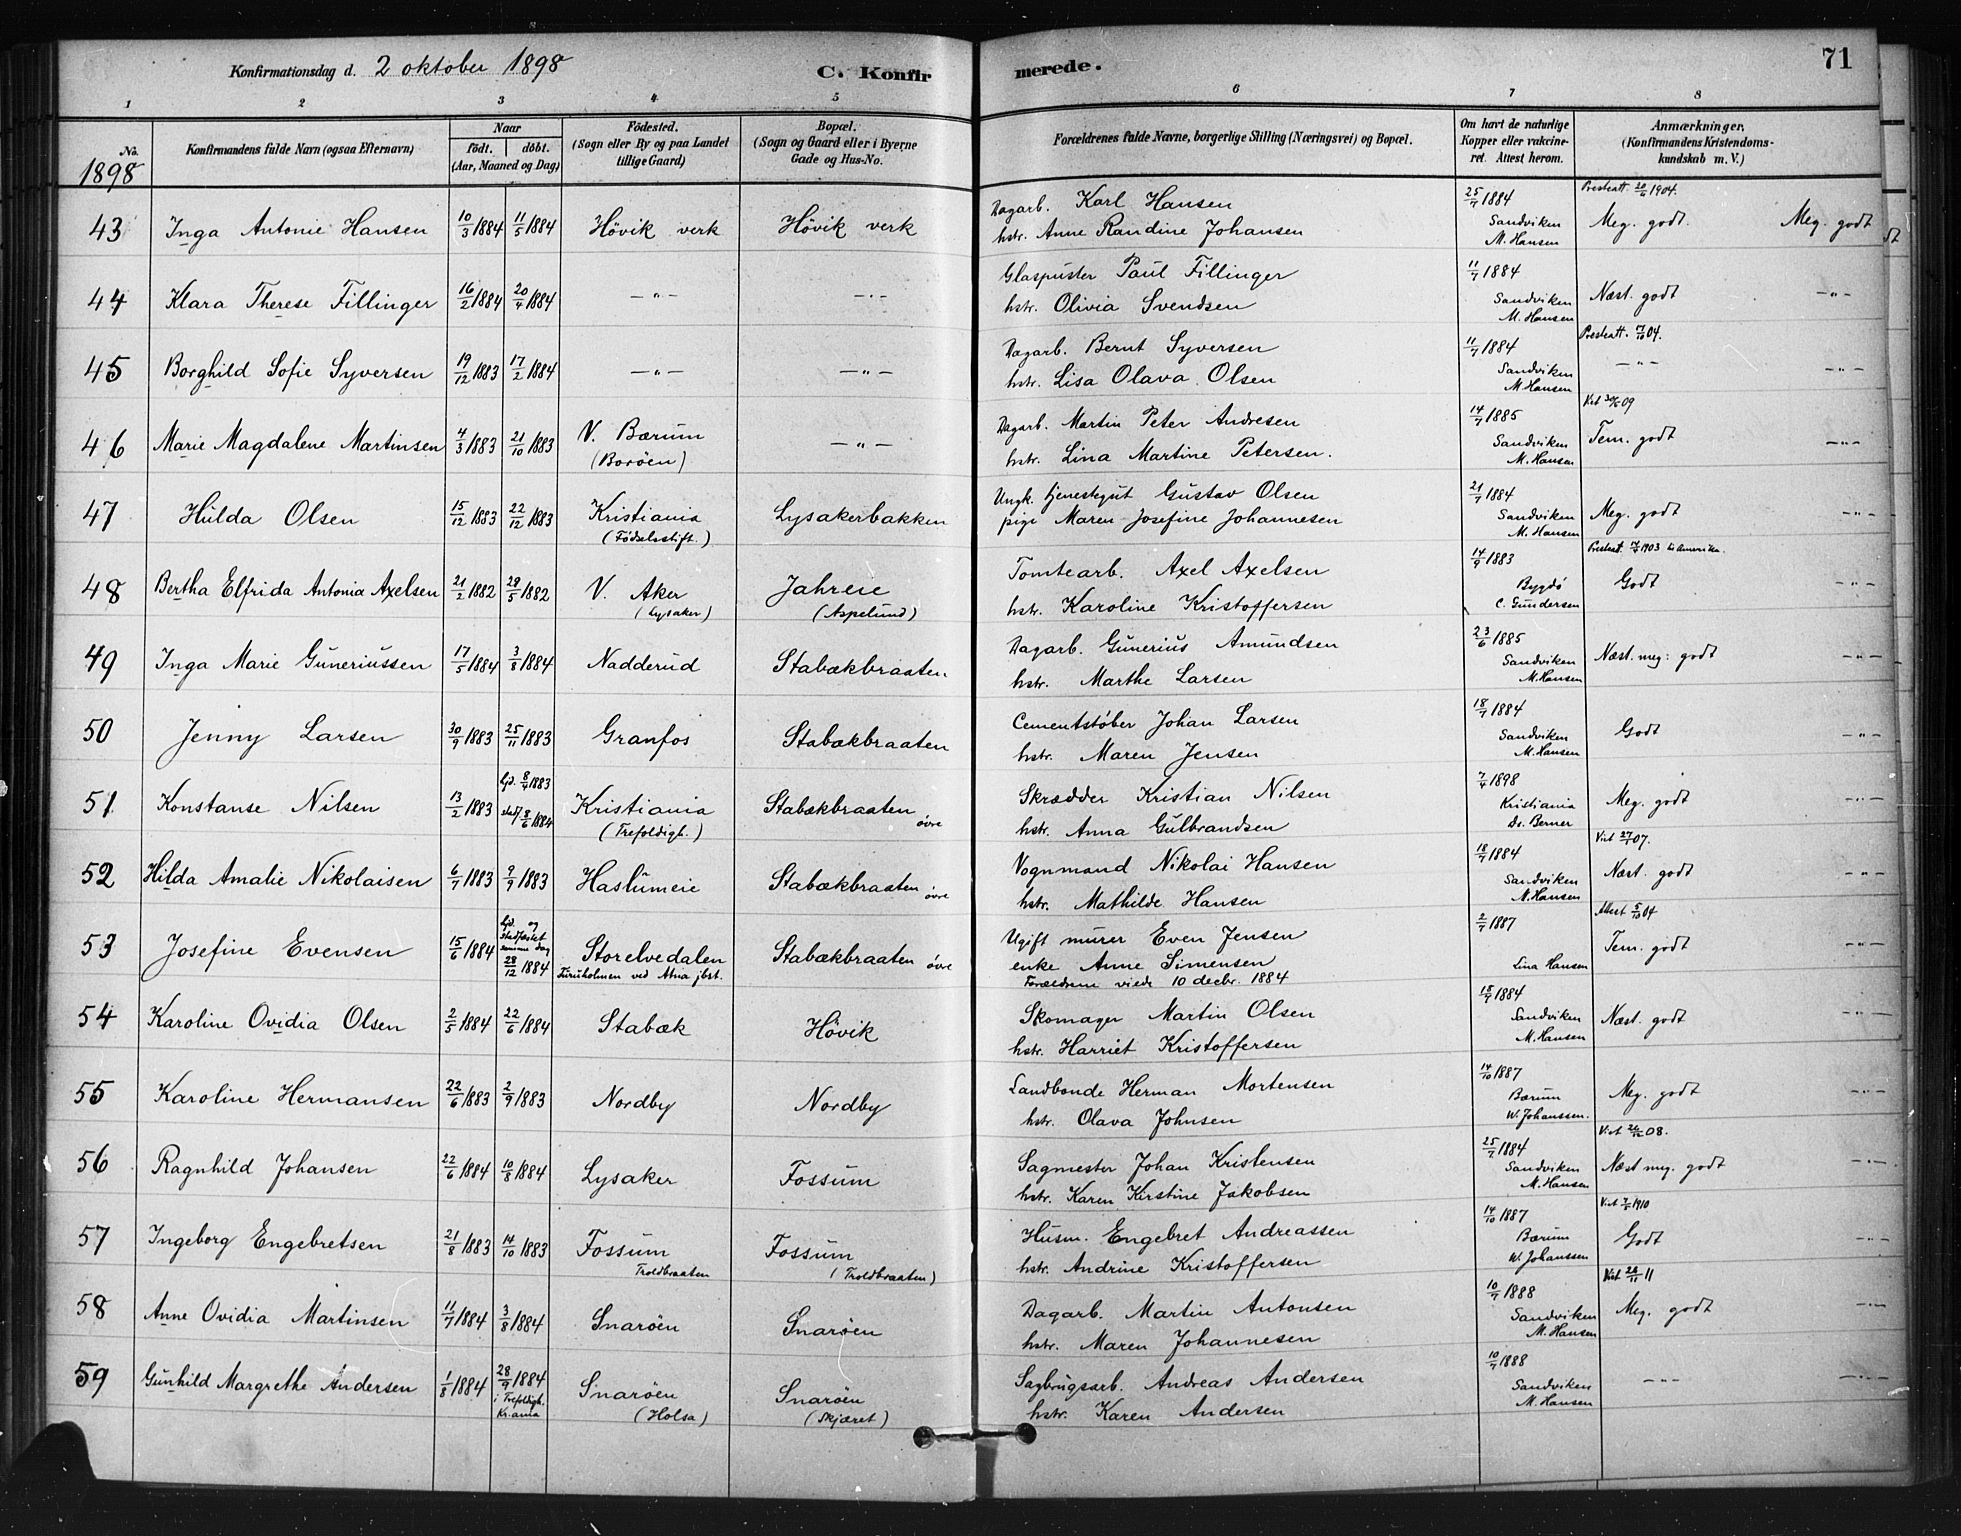 Konfirmationsdag d. 2 oktober 1898
C. Konfirmerede.
71
1 2 3 4 5 6 7 8
No. 1898
Konfirmandens fulde Navn (ogsaa Efternavn)
Naar
födt. döbt.
(Aar, Maaned og Dag)
Födested.
(Sogn eller By og paa Landet
tillige Gaard)
Bopæl.
(Sogn og Gaard eller i Byerne
Gade og Hus-No.
Forældrenes fulde Navne, borgerlige Stilling (Næringsvei) og Bopæl.
Om havt de naturlige
Kopper eller vakcine-
ret. Attest herom.
Anmærkninger.
(Konfirmandens Kristendoms-
kundskab m. V.)
43 Inga Antonie Hansen 10/3 1884 11/5 1884 Høvik verk Høvik verk
Dagarb. Karl Hansen
hstr. Anne Randine Johansen
25/7 1884
Sandviken
M. Hansen
Presteatt. 20/6 1904.
Meg. godt. Meg. godt
44 Klara Therese Fillinger 16/2 1884 20/4 1884 —"— —"—
Glaspuster Paul Fillinger
hstr. Olivia Svendsen
11/7 1884
Sandviken
M. Hansen
Næst. godt —"—
45 Borghild Sofie Syversen 19/12 1883 17/2 1884 —"— —"—
Dagarb. Bernt Syversen
hstr. Lisa Olava Olsen
11/7 1884
Sandviken
M. Hansen
Presteatt. 7/10 04.
—"— —"—
46 Marie Magdalene Martinsen 4/3 1883 21/10 1883 V. Bærum
(Borøen)
—"—
Dagarb. Martin Peter Andresen
hstr. Lina Martine Petersen.
14/7 1885
Sandviken
M. Hansen
Tem. godt —"—
47 Hulda Olsen 15/12 1883 22/12 1883 Kristiania
(Fødselsstift.)
Lysakerbakken
Ungk. tjenestegut Gustav Olsen
pige Maren Josefine Johannesen
21/7 1884
Sandviken
M. Hansen
Meg. godt —"—
48 Bertha Elfrida Antonia Axelsen 21/2 1882 28/5 1882 V. Aker
(Lysaker)
Jahreie
(Aspelund)
Tomtearb. Axel Axelsen
hstr. Karoline Kristoffersen
14/9 1883
Bygdö
C. Gundersen
Presteatt. 1903 til Amerika.
Godt —"—
49 Inga Marie Guneriussen 17/5 1884 3/8 1884 Nadderud Stabækbraaten
Dagarb. Gunerius Amundsen
hstr. Marthe Larsen
23/6 1885
Sandviken
M. Hansen
Næst. meg: godt —"—
50 Jenny Larsen 30/9 1883 25/11 1883 Granfos Stabækbraaten
Cementstøber Johan Larsen
hstr. Maren Jensen
18/7 1884
Sandviken
M. Hansen
Godt —"—
51 Konstanse Nilsen 13/2 1883 hjd. 8/4 1883
stadf. 8/6 1884
Kristiania
(Trefoldigh.)
Stabækbraaten
øvre
Skrædder Kristian Nilsen
hstr. Anna Gulbrandsen
7/4 1898
Kristiania
Dr. Berner
Meg. godt —"—
52 Hilda Amalie Nikolaisen 6/7 1883 9/9 1883 Haslumeie Stabækbraaten
øvre
Vognmand Nikolai Hansen
hstr. Mathilde Hansen
18/7 1884
Sandviken
M. Hansen
Viet 27/1 07.
Næst. godt —"—
53 Josefine Evensen 15/6 1884 hjd. og
stadfæstet
samme dag
28/12 1884
Storelvedalen
Furuholmen ved Atna jbst.
Stabækbraaten øvre
Ugift murer Even Jensen
enke Anne Simensen
Forældrene viede 10 decbr. 1884
2/7 1887
Lina Hansen
Attest 5/10 04
Tem. godt —"—
54 Karoline Ovidia Olsen 2/5 1884 22/6 1884 Stabæk Høvik
Skomager Martin Olsen
hstr. Harriet Kristoffersen
18/7 1884
Sandviken
M. Hansen
Næst. godt —"—
55 Karoline Hermansen 22/6 1883 2/9 1883 Nordby Nordby
Landbonde Herman Mortensen
hstr. Olava Johnsen
14/10 1887
Bærum
W. Johanssen.
Meg. godt —"—
56 Ragnhild Johansen 22/6 1884 10/8 1884 Lysaker Fossum
Sagmester Johan Kristensen
hstr. Karen Kirstine Jakobsen
25/7 1884
Sandviken
M. Hansen
Næst meg. godt —"—
57 Ingeborg Engebretsen 21/8 1883 14/10 1883 Fossum
Troldbraaten
Fossum
(Troldbraaten)
Husm. Engebret Andreassen
hstr. Andrine Kristoffersen
14/10 1887
Bærum
W. Johanssen
Godt —"—
58 Anne Ovidia Martinsen 11/7 1884 3/8 1884 Snarøen Snarøen
Dagarb. Martin Antonsen
hstr. Maren Johannesen
10/7 1888
Sandviken
M. Hansen
Meg. godt —"—
59 Gunhild Margrethe Andersen 1/8 1884 28/9 1884
i Trefoldigh.
Kr.ania
Snarøen
(Holsa)
Snarøen
(Skjæret)
Sagbrugsarb. Andreas Andersen
hstr. Karen Andersen
10/7 1888
Sandviken
M. Hansen
—"— —"—